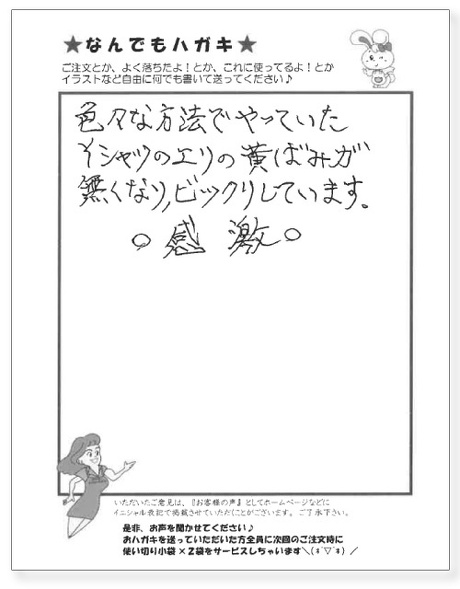 ★なんでもハガキ★
ご注文とか、よく落ちたよ！とか、これに使ってるよ！とか
イラストなど自由に何でも書いて送ってください♪
色々な方法でやっていた
Yシャツのエリの黄ばみが
無くなり,ビックリしています。
○感激○
いただいたご意見は、『お客様の声』としてホームページなどに
イニシャル表記で掲載させていただくことがございます。ご了承下さい。
是非、お声を聞かせてください♪
おハガキを送っていただいた方全員に次回のご注文時に
使い切り小袋×2袋をサービスしちゃいます＼(*´▽`*)／